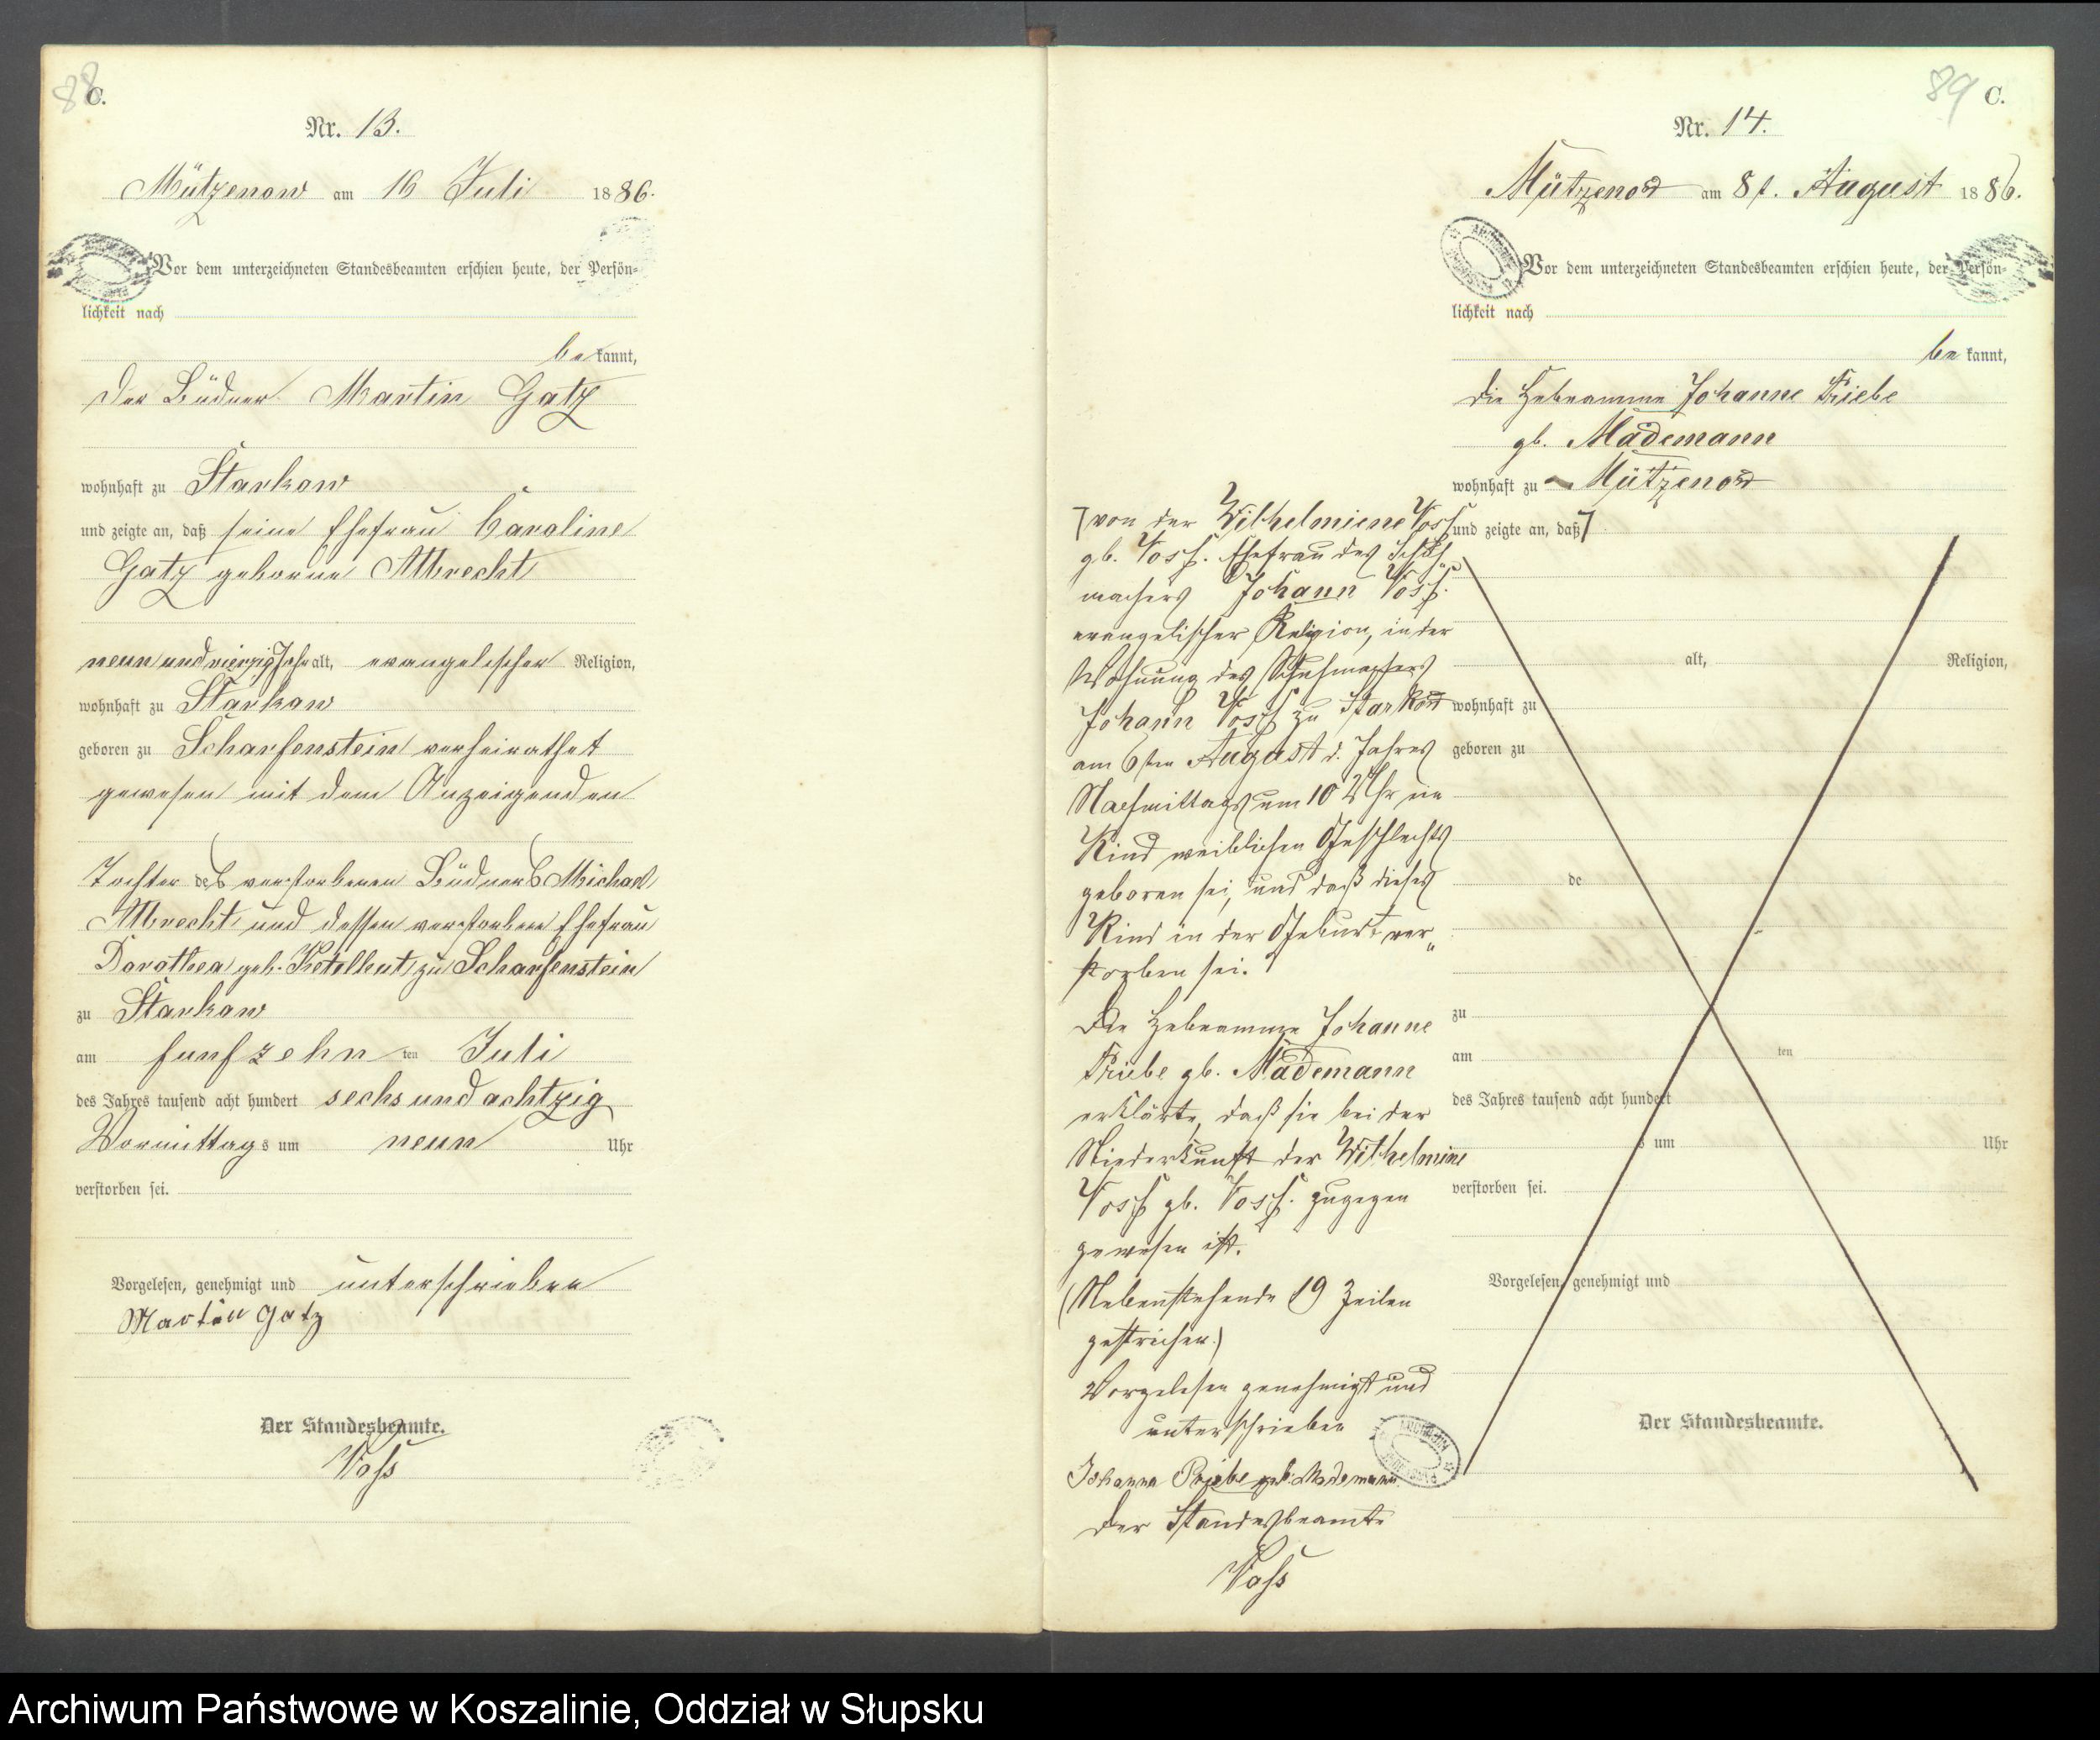 88
C.
Nr. 13.
Mützenow am 16 Juli 1886.
Vor dem unterzeichneten Standesbeamten erschien heute, der Persön-
lichkeit nach
be kannt,
der Büdner Martin Gatz
wohnhaft zu Starkow
und zeigte an, daß seine Ehefrau Caroline
Gatz geborne Albrecht
neun und vierzig Jahr alt, evangelischer Religion,
wohnhaft zu Starkow
geboren zu Scharfenstein verheirathet
gewesen mit dem Anzeigenden
Tochter des verstorbenen Büdners Michael
Albrecht und dessen verstorbene Ehefrau
Dorothea geb. Ketelhut zu Scharfenstein
zu Starkow
am funfzehn ten Juli
des Jahres tausend acht hundert sechs und achtzig
Vormittag s um neun Uhr
verstorben sei.
Vorgelesen, genehmigt und unterschrieben
Martin Gatz
Der Standesbeamte.
Voss
89 C.
Nr. 14.
Mützenow am 8t. August 1886.
Vor dem unterzeichneten Standesbeamten erschien heute, der Persön-
lichkeit nach
be kannt,
die Hebeamme Johanne Priebe
gb. Mademann
wohnhaft zu Mützenow
und zeigte an, daß ⁊
alt, Religion,
wohnhaft zu
geboren zu
de
zu
am ten
des Jahres tausend acht hundert
s um Uhr
verstorben sei.
Vorgelesen, genehmigt und
Der Standesbeamte.
⁊ von der Wilhelmiene Voss
gb. Voss. Ehefrau des Schuh„
machers Johann Voss.
evangelischer Religion, in der
Wohnung des Schuhmachers
Johann Voss zu Starkow
am 6ten August d. Jahres
Nachmittags um 10 Uhr ein
Kind weiblichen Geschlechts
geboren sei, und daß dieses
Kind in der Geburt ver„
storben sei.
Die Hebeamme Johanne
Priebe gb. Mademann
erklärte, daß sie bei der
Niederkunft der Wilhelmine
Voss gb. Voss. zugegen
gewesen ist.
(Nebenstehende 19 Zeilen
gestrichen.)
Vorgelesen genehmigt und
unterschrieben
Johanna Priebe geb. Mademann
Der Standesbeamte
Voss
Archiwum Państwowe w Koszalinie, Oddział w Słupsku